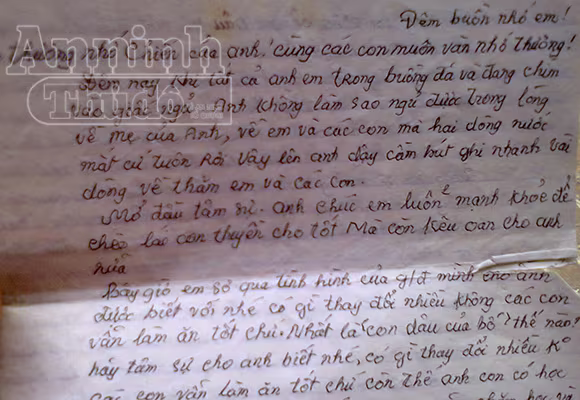 Đêm buồn nhớ em!
Thương nhớ Chiến của anh! cùng các con muôn vàn nhớ thương!
An ninh
Thủ đô
Đêm nay khi tất cả anh em trong buồng đã và đang chìm
vào giấc ngủ. Anh không làm sao ngủ được trong lòng
về mẹ của Anh, về em và các con mà hai dòng nước
mắt cứ tuôn Rơi vậy lên anh dậy cầm bút ghi nhanh vài
dòng về thăm em và các con.
Mở đầu tâm sự. anh chúc em luôn mạnh khoẻ để
chèo lái con thuyền cho tốt Mà còn kêu oan cho anh
nữa
Bây giờ em sơ qua tình hình của gđ mình cho anh
được biết với nhé có gì thay đổi nhiều không các con
vẫn làm ăn tốt chứ. Nhất là con dâu của bố thế nào?
hãy tâm sự cho anh biết nhé, có gì thay đổi nhiều K°
các con vẫn làm ăn tốt chứ còn thế anh con có học